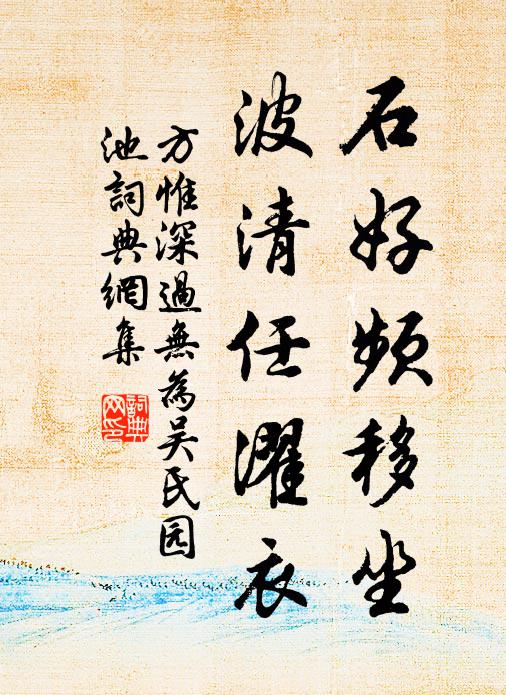 石好频移坐
波清任濯衣
方惟深過無為吴氏园
池詞典網集
詞典
网印